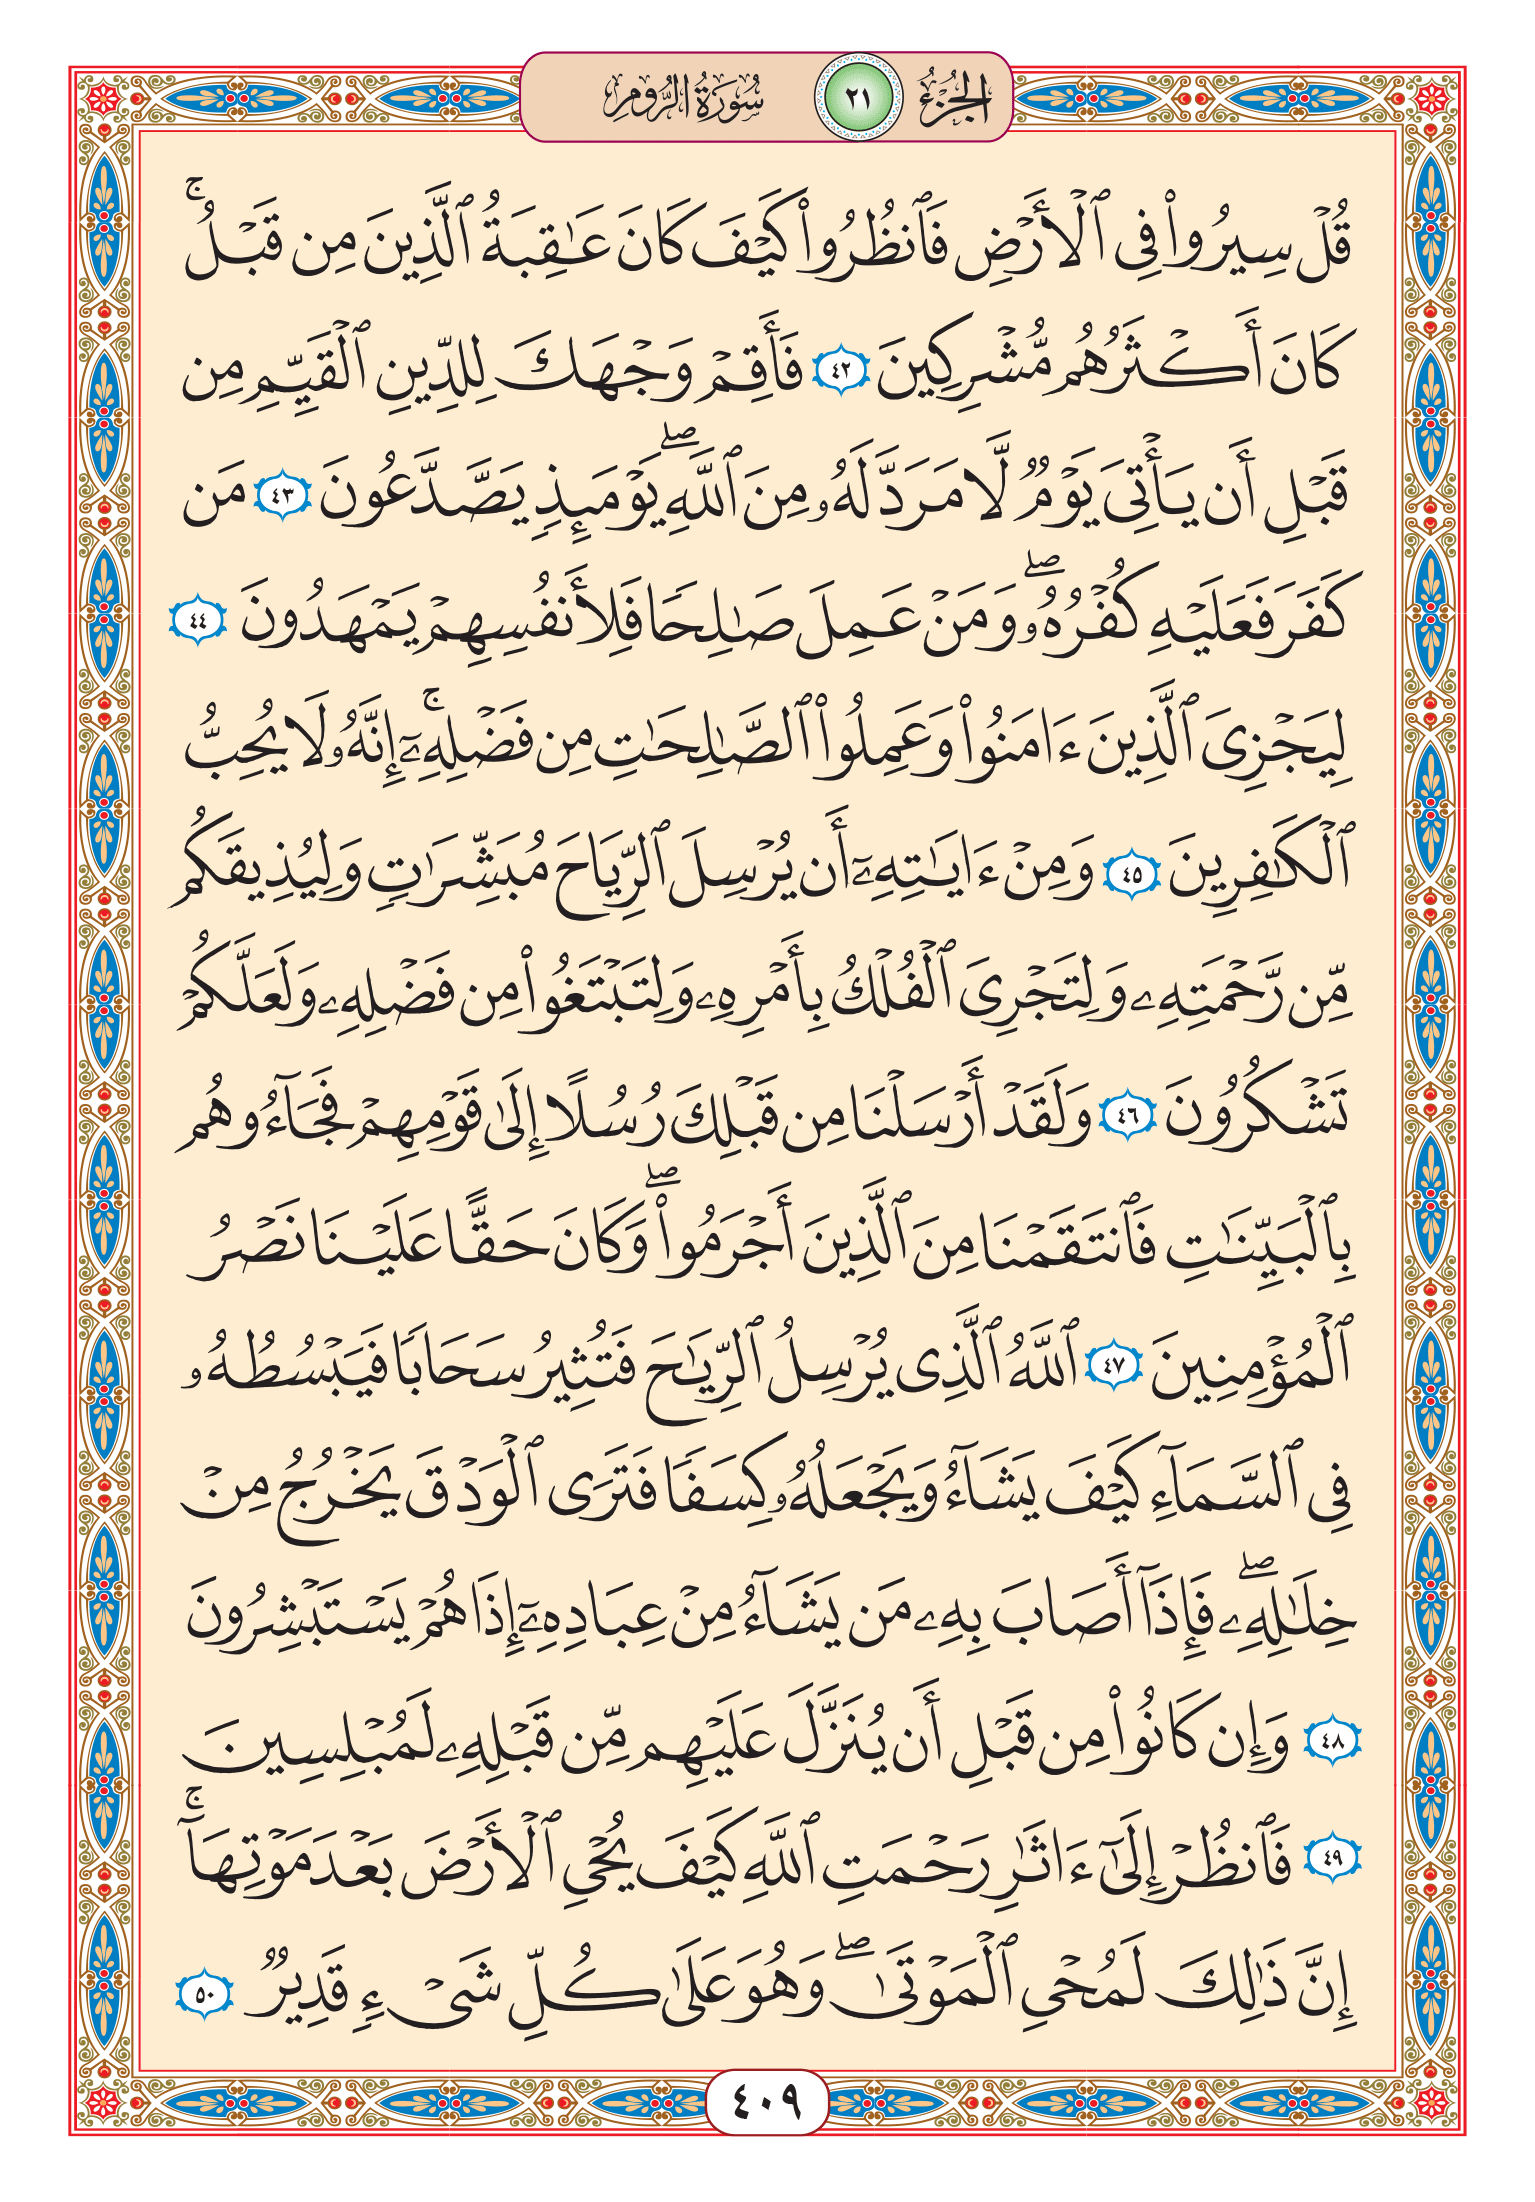 الجزء ٢١ سورة الروم
قُلْ سِيرُوا۟ فِى ٱلْأَرْضِ فَٱنظُرُوا۟ كَيْفَ كَانَ عَـٰقِبَةُ ٱلَّذِينَ مِن قَبْلُ ۚ
كَانَ أَكْثَرُهُم مُّشْرِكِينَ ٤٢ فَأَقِمْ وَجْهَكَ لِلدِّينِ ٱلْقَيِّمِ مِن
قَبْلِ أَن يَأْتِىَ يَوْمٌ لَّا مَرَدَّ لَهُۥ مِنَ ٱللَّهِ ۖ يَوْمَئِذٍ يَصَّدَّعُونَ ٤٣ مَن
كَفَرَ فَعَلَيْهِ كُفْرُهُۥ ۖ وَمَنْ عَمِلَ صَـٰلِحًا فَلِأَنفُسِهِمْ يَمْهَدُونَ ٤٤
لِيَجْزِىَ ٱلَّذِينَ ءَامَنُوا۟ وَعَمِلُوا۟ ٱلصَّـٰلِحَـٰتِ مِن فَضْلِهِۦٓ ۚ إِنَّهُۥ لَا يُحِبُّ
ٱلْكَـٰفِرِينَ ٤٥ وَمِنْ ءَايَـٰتِهِۦٓ أَن يُرْسِلَ ٱلرِّيَاحَ مُبَشِّرَٰتٍ وَلِيُذِيقَكُم
مِّن رَّحْمَتِهِۦ وَلِتَجْرِىَ ٱلْفُلْكُ بِأَمْرِهِۦ وَلِتَبْتَغُوا۟ مِن فَضْلِهِۦ وَلَعَلَّكُمْ
تَشْكُرُونَ ٤٦ وَلَقَدْ أَرْسَلْنَا مِن قَبْلِكَ رُسُلًا إِلَىٰ قَوْمِهِمْ فَجَآءُوهُم
بِٱلْبَيِّنَـٰتِ فَٱنتَقَمْنَا مِنَ ٱلَّذِينَ أَجْرَمُوا۟ ۖ وَكَانَ حَقًّا عَلَيْنَا نَصْرُ
ٱلْمُؤْمِنِينَ ٤٧ ٱللَّهُ ٱلَّذِى يُرْسِلُ ٱلرِّيَـٰحَ فَتُثِيرُ سَحَابًا فَيَبْسُطُهُۥ
فِى ٱلسَّمَآءِ كَيْفَ يَشَآءُ وَيَجْعَلُهُۥ كِسَفًا فَتَرَى ٱلْوَدْقَ يَخْرُجُ مِنْ
خِلَـٰلِهِۦ ۖ فَإِذَآ أَصَابَ بِهِۦ مَن يَشَآءُ مِنْ عِبَادِهِۦٓ إِذَا هُمْ يَسْتَبْشِرُونَ
٤٨ وَإِن كَانُوا۟ مِن قَبْلِ أَن يُنَزَّلَ عَلَيْهِم مِّن قَبْلِهِۦ لَمُبْلِسِينَ
٤٩ فَٱنظُرْ إِلَىٰٓ ءَاثَـٰرِ رَحْمَتِ ٱللَّهِ كَيْفَ يُحْىِ ٱلْأَرْضَ بَعْدَ مَوْتِهَآ ۚ
إِنَّ ذَٰلِكَ لَمُحْىِ ٱلْمَوْتَىٰ ۖ وَهُوَ عَلَىٰ كُلِّ شَىْءٍ قَدِيرٌ ٥٠
٤٠٩